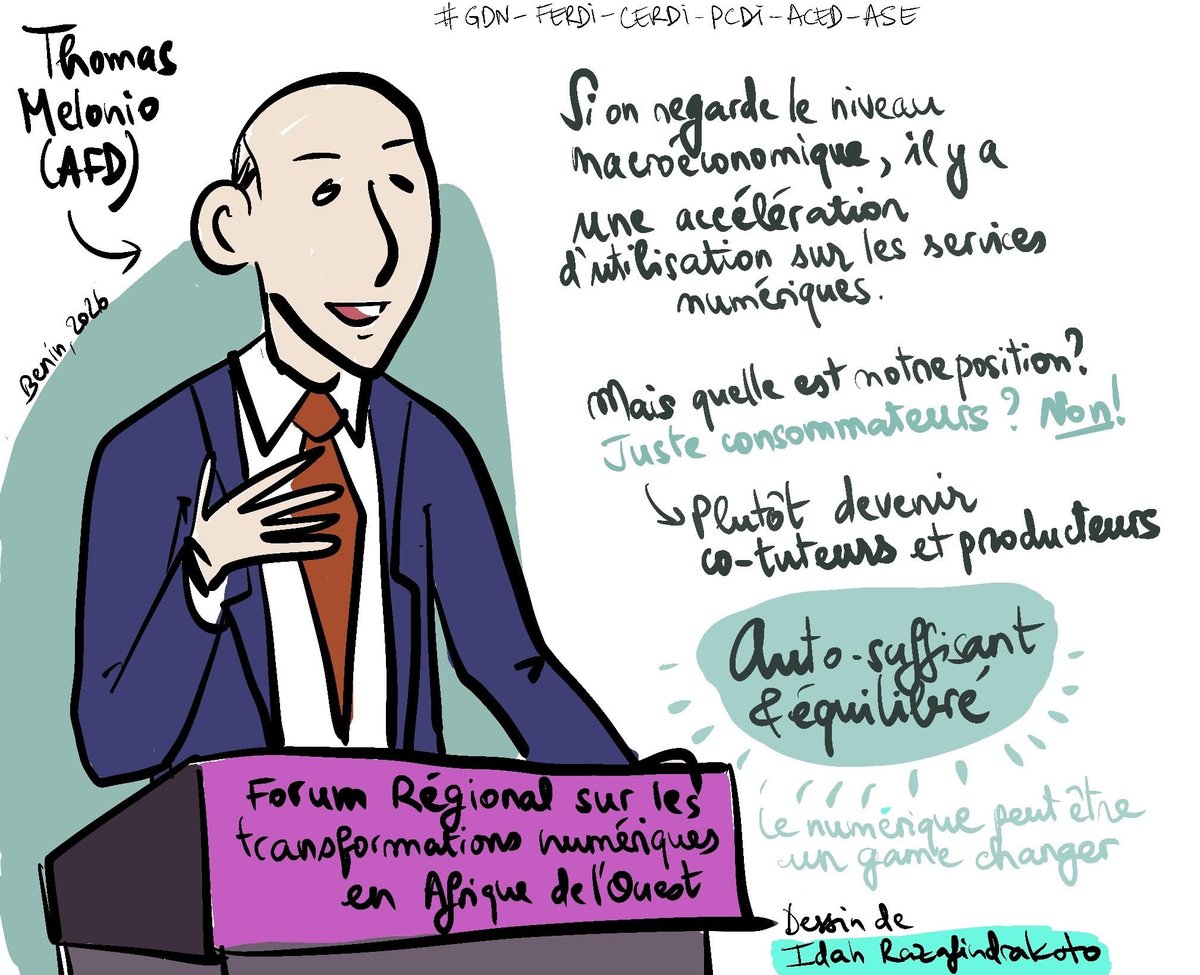 #GDN-FERDI-CERDI-PCDI-ACED-ASE
Thomas
Melonio
(AFD)
Benin, 2026
Si on regarde le niveau
macroéconomique, il y a
une accélération
d'utilisation sur les services
numériques.
Mais quelle est notre position?
Juste consommateurs? Non!
Plutôt devenir
co-tuteurs et producteurs
Auto-suffisant
& équilibré
Le numérique peut être
un game changer
Forum Régional sur les
transformations numériques
en Afrique de l'Ouest
Dessin de
Idah Razafindrakoto